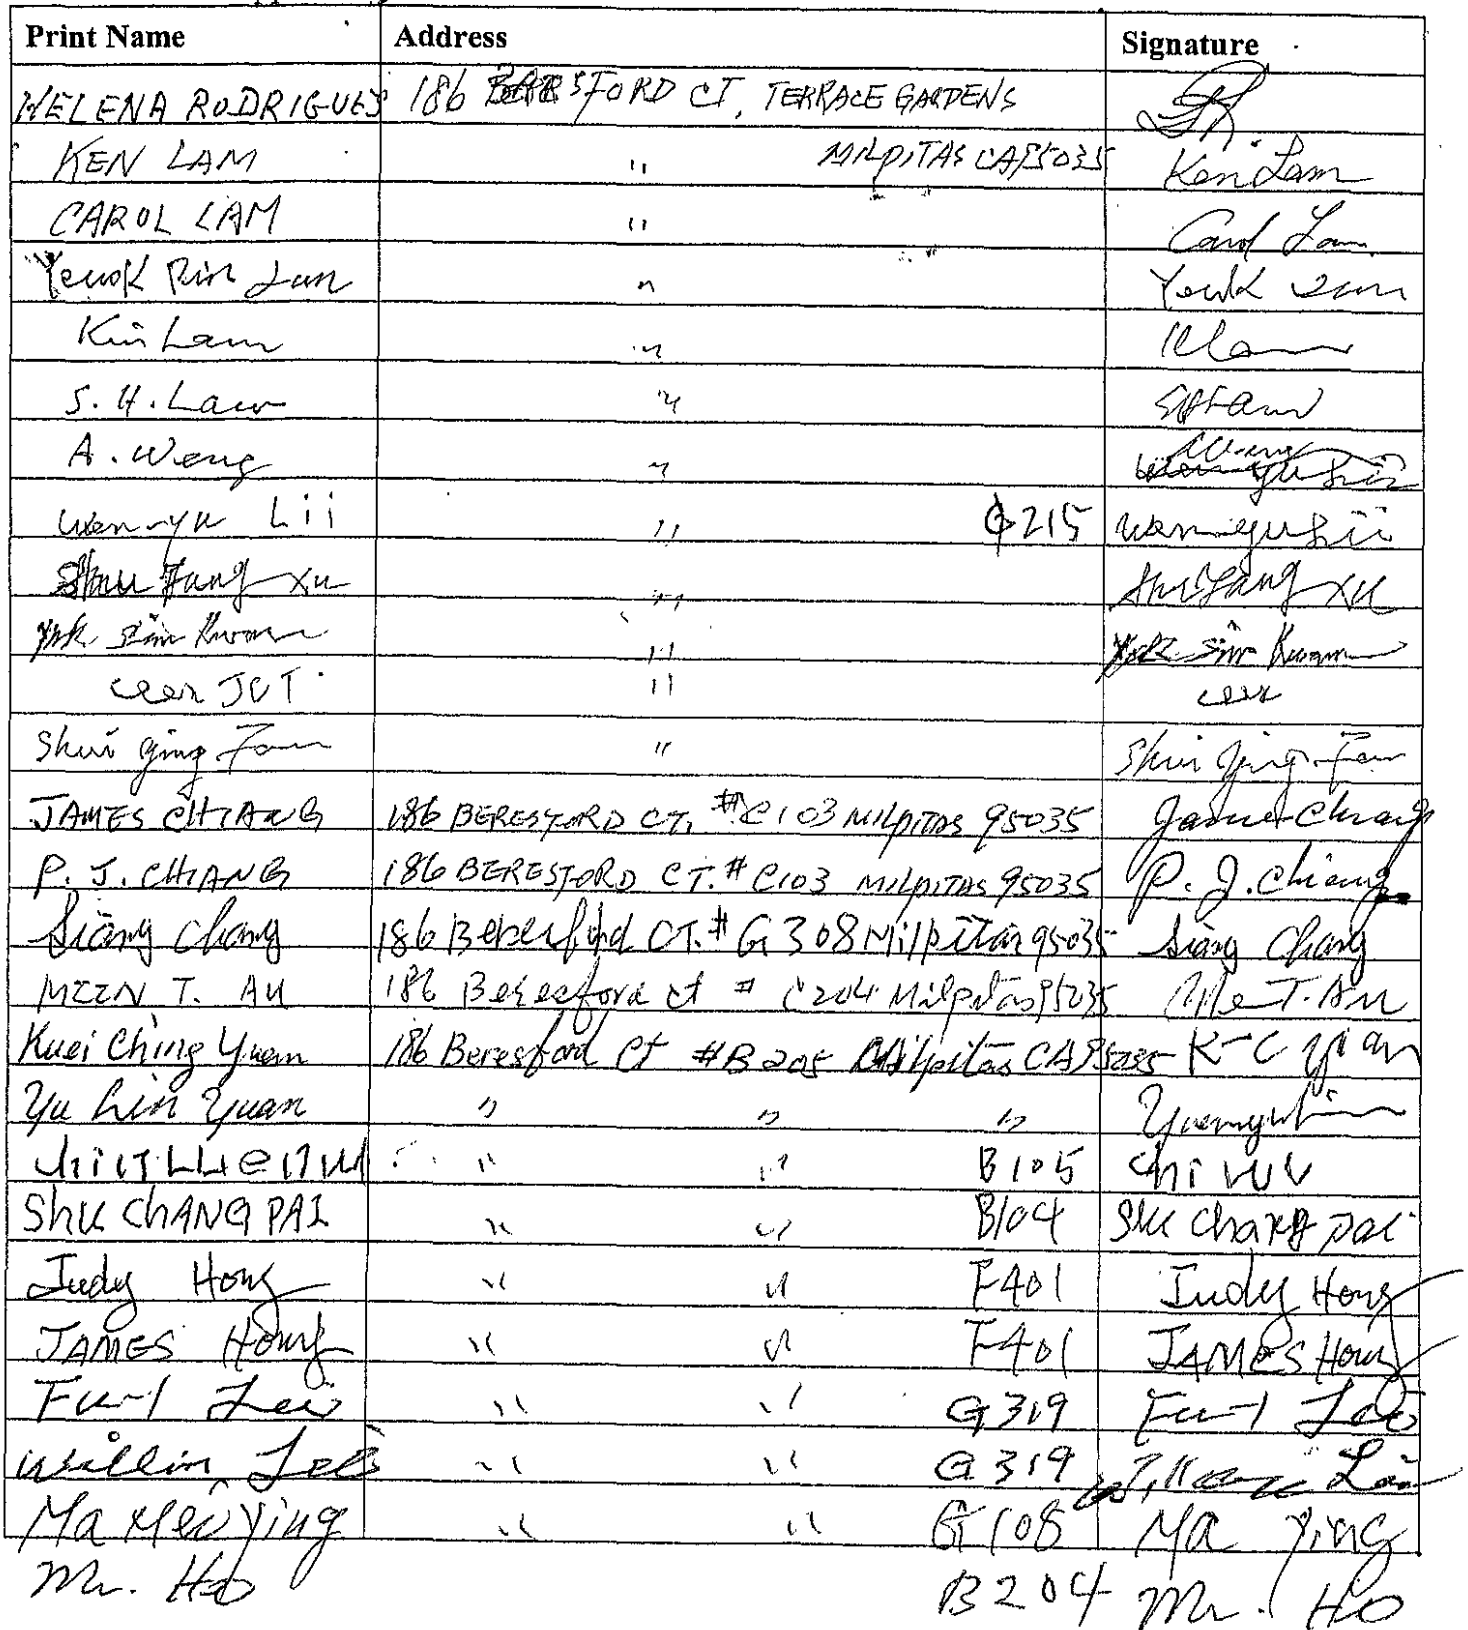 Print Name Address Signature
HELENA RODRIGUES 186 BERESFORD CT, TERRACE GARDENS
KEN LAM " MILPITAS CA 95035 Ken Lam
CAROL LAM " Carol Lam
" Youk
Kin Lam "
S. H. Law "
A. Weng "
Wen-yu Lii " G215 Wen-yu Lii
Fang Xu " Fang XU
Yok Sim Kwan " Yok Sim Kwan
JUT "
Shui Ging Fan " Shui Ging Fan
JAMES CHIANG 186 BERESFORD CT. #C103 MILPITAS 95035 James Chiang
P. J. CHIANG 186 BERESFORD CT. #C103 MILPITAS 95035 P. J. Chiang
Siang Chang 186 Beresford CT. # G308 Milpitas 95035 Siang Chang
T. AU 186 Beresford ct # C204 Milpitas 95035 T. Au
Kuei Ching Yuan 186 Beresford Ct #B205 Milpitas CA 95035 K-C Yuan
Yu Lin Yuan " " " Yuanyulin
" " B105 Chi WU
Shu CHANG PAI " " B104 Shu Chang Pai
Judy Hong " " F401 Judy Hong
JAMES Hong " " F401 JAMES Hong
Fu-I Lei " " G319 Fu-I Lei
" " G319
Ma Mei Ying " " G108 Ma Ying
Mr. Ho B204 Mr. Ho